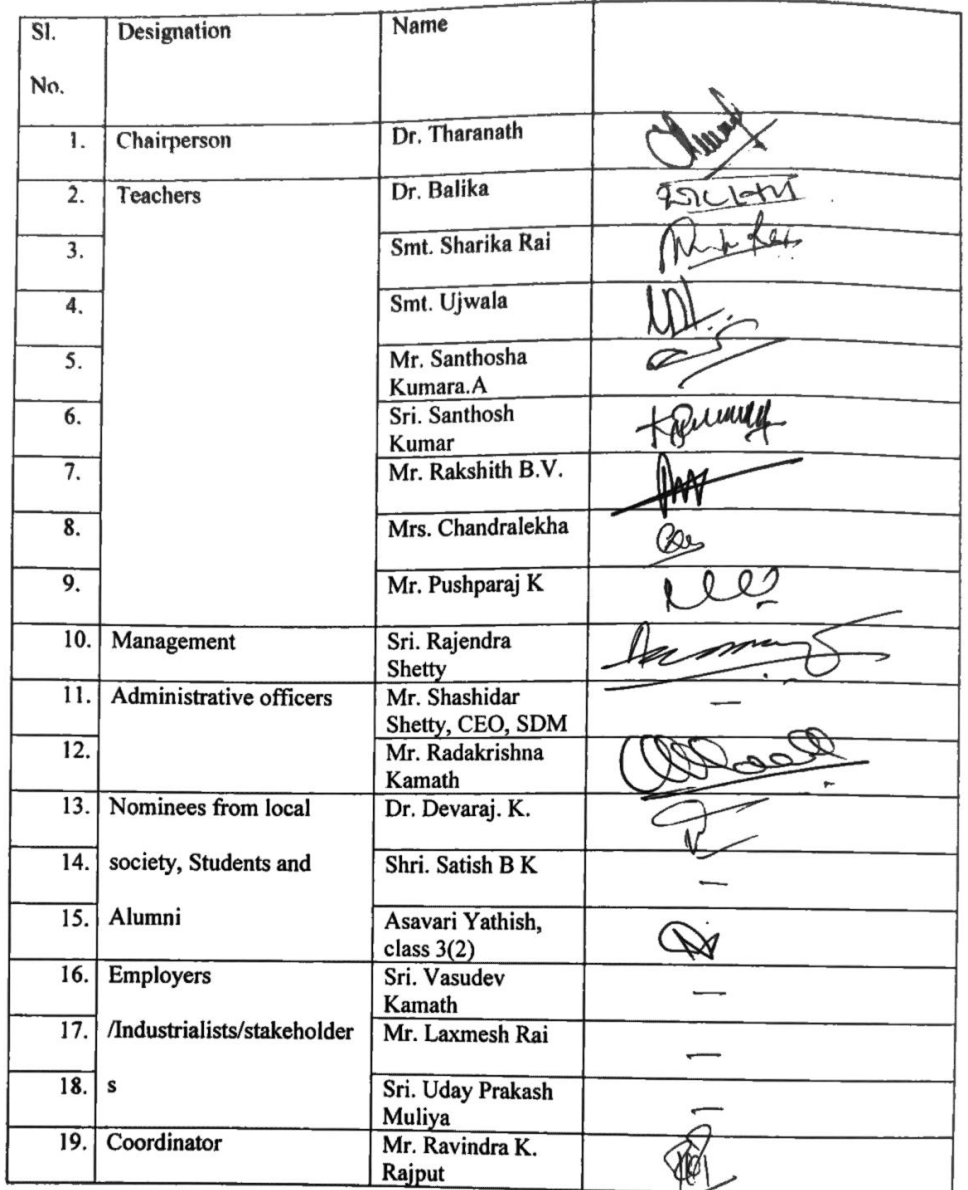 Sl. No. Designation Name
1. Chairperson Dr. Tharanath
2. Teachers Dr. Balika
3. Smt. Sharika Rai
4. Smt. Ujwala
5. Mr. Santhosha
Kumara.A
6. Sri. Santhosh
Kumar
7. Mr. Rakshith B.V.
8. Mrs. Chandralekha
9. Mr. Pushparaj K
10. Management Sri. Rajendra
Shetty
11. Administrative officers Mr. Shashidar
Shetty, CEO, SDM
—
12. Mr. Radakrishna
Kamath
13. Nominees from local Dr. Devaraj. K.
14. society, Students and Shri. Satish B K —
15. Alumni Asavari Yathish,
class 3(2)
16. Employers Sri. Vasudev
Kamath
—
17. /Industrialists/stakeholder Mr. Laxmesh Rai —
18. s Sri. Uday Prakash
Muliya
—
19. Coordinator Mr. Ravindra K.
Rajput